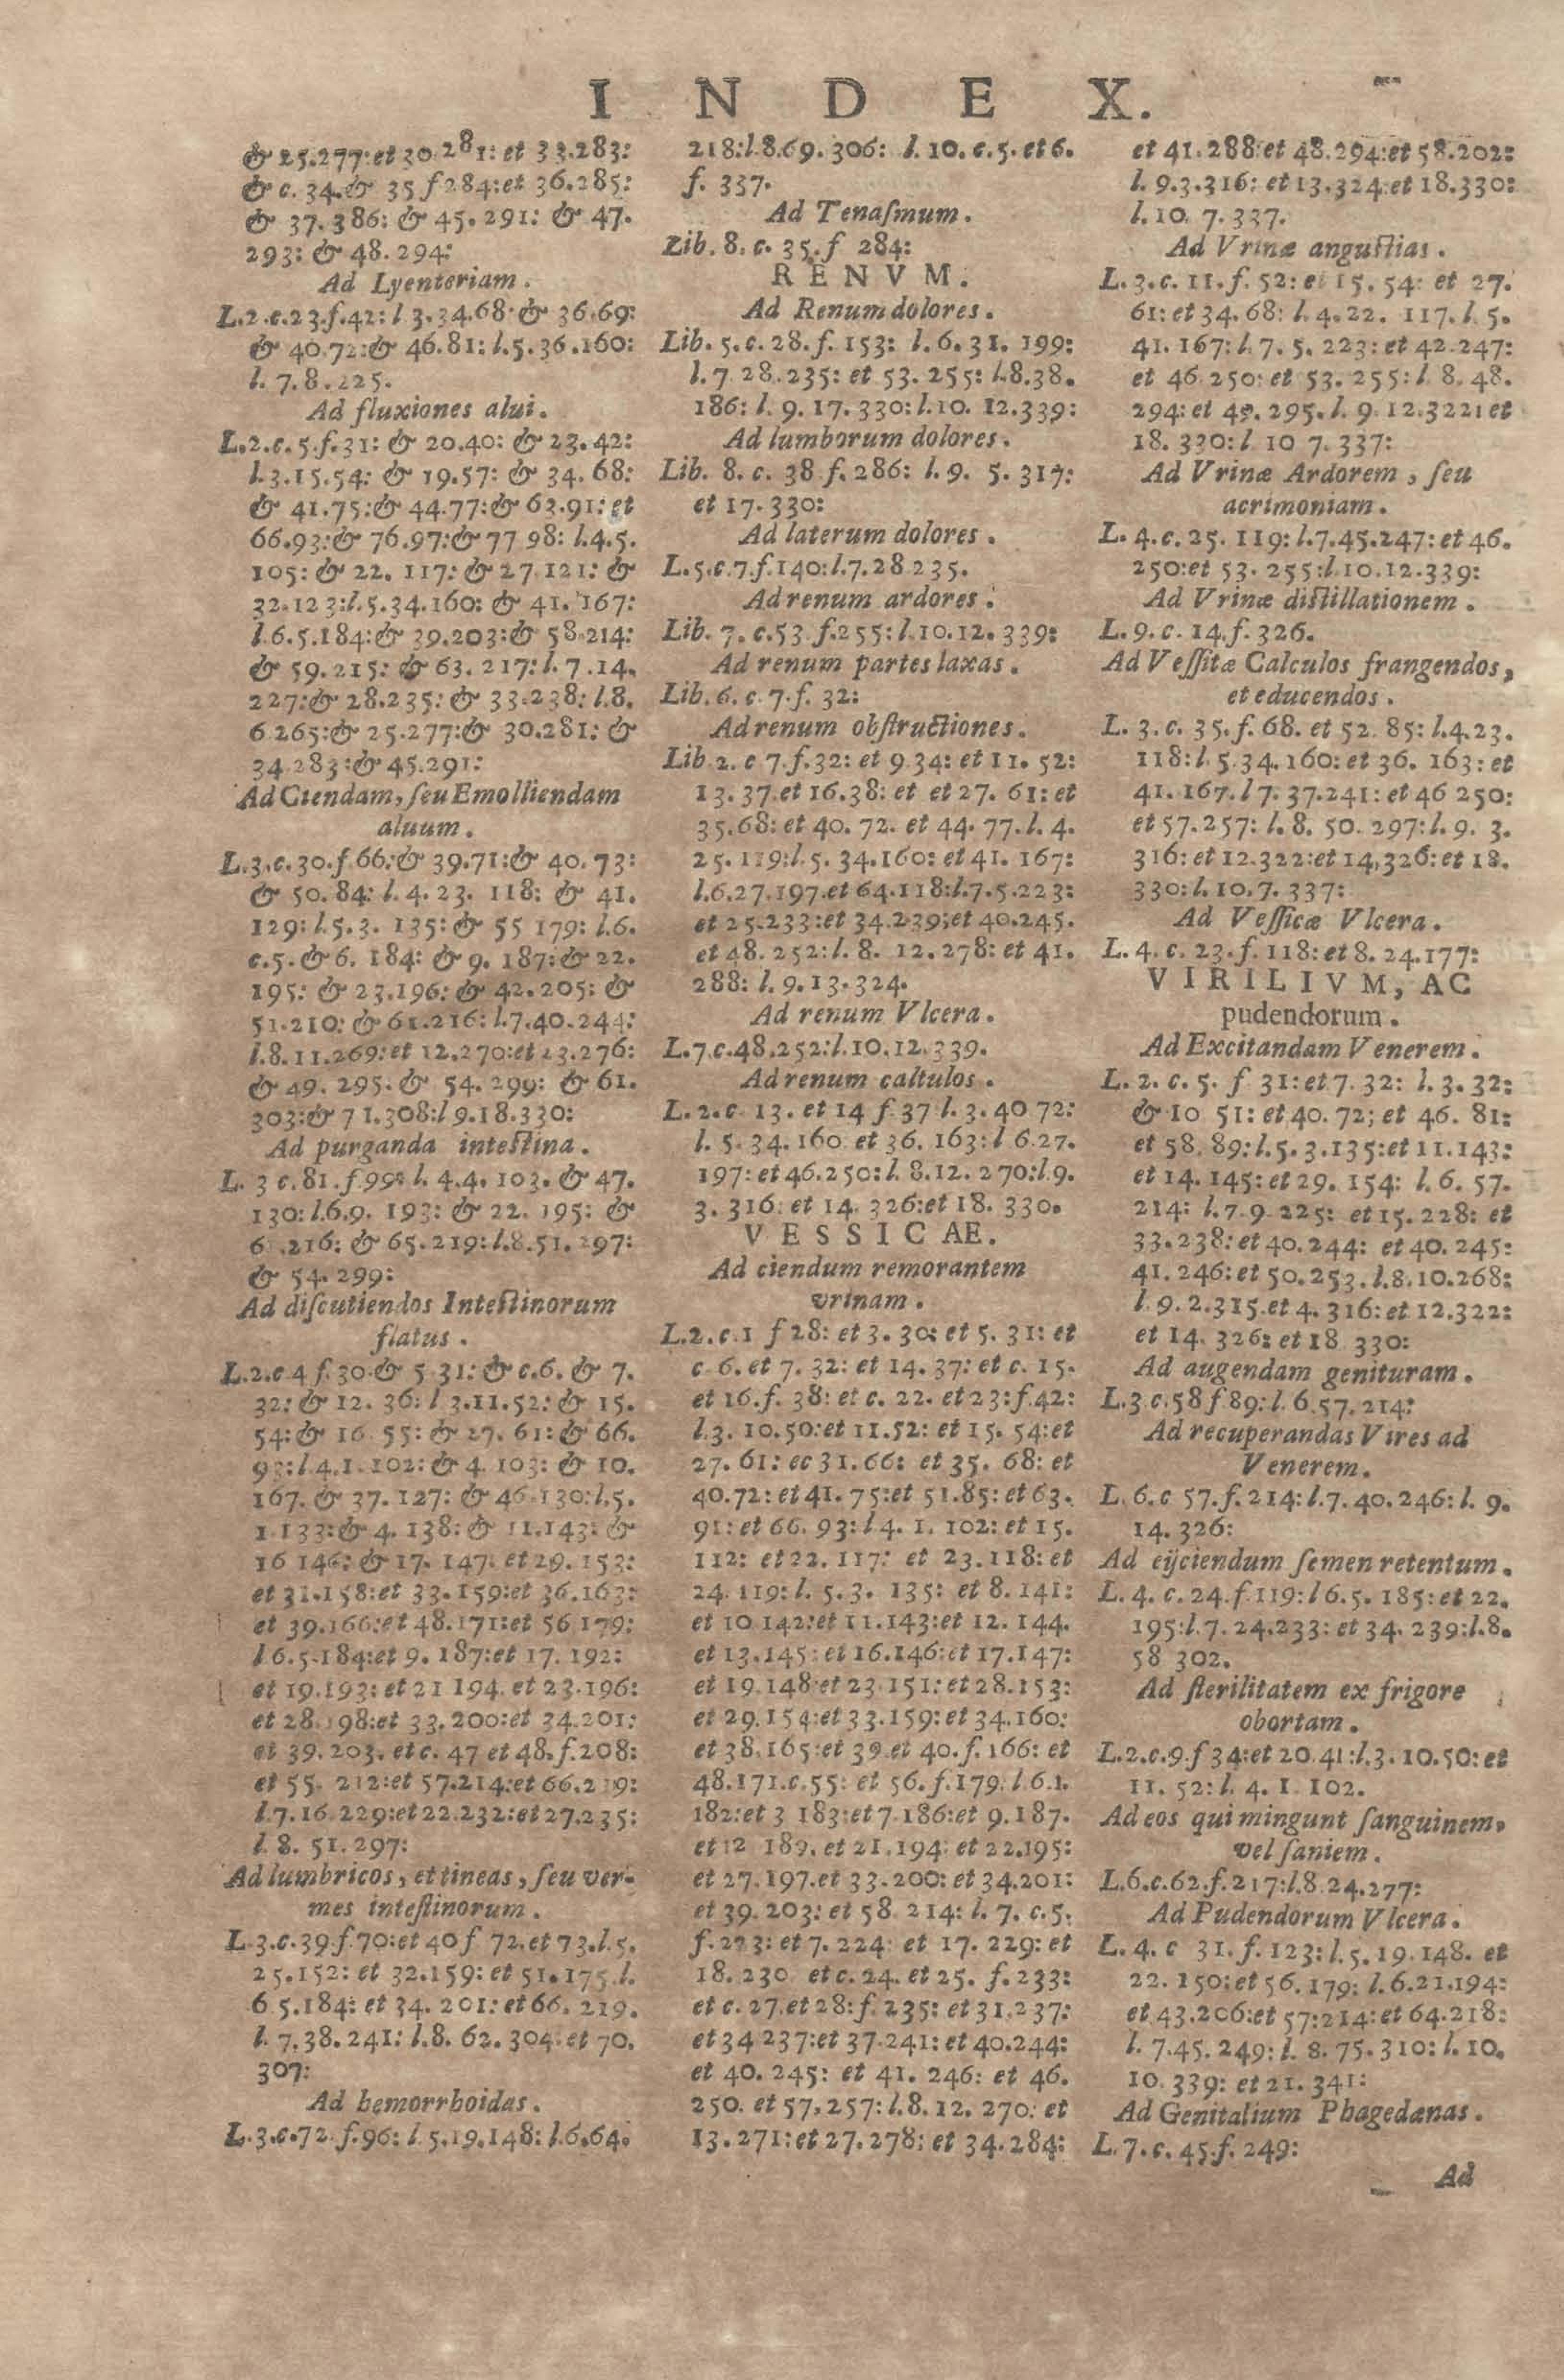 I N D E X.
& 25.277:et 30.281: et 33.283:
& c. 34.& 35 f 284:et 36.285:
& 37.386: & 45.291: & 47.
293: & 48.294:
Ad Lyenteriam.
L.2.c.23.f.42: l 3.34.68.& 36.69:
& 40.72:& 46.81: l.5.36.160:
l. 7.8.225.
Ad fluxiones alui.
L.2.c.5.f.31: & 20.40: & 23.42:
l.3.15.54: & 19.57: & 34.68:
& 41.75:& 44.77:& 63.91: et
66.93:& 76.97:& 77 98: l.4.5.
105: & 22. 117: & 27.121: &
32.123:l.5.34.160: & 41.167:
l.6.5.184:& 39.203:& 58.214:
& 59.215: & 63.217: l.7.14.
227:& 28.235: & 33.238: l.8.
6.265:& 25.277:& 30.281: &
34.283:& 45.291:
Ad Ciendam, ſeu Emolliendam
aluum.
L.3.c.30.f.66:& 39.71:& 40.73:
& 50.84: l.4.23. 118: & 41.
129: l.5.3. 135:& 55 179: l.6.
c.5.& 6. 184: & 9. 187:& 22.
195: & 23.196: & 42.205: &
51.210: & 61.216: l.7.40.244:
l.8.11.269:et 12.270:et 23.276:
& 49. 295.& 54.299: & 61.
303:& 71.308:l 9.18.330:
Ad purganda inteſtina.
L. 3 c.81.f.99: l. 4.4. 103. & 47.
130: l.6.9. 193: & 22. 195: &
6 .216: & 65.219: l.8.51.297:
& 54.299:
Ad diſcutiendos Inteſtinorum
flatus.
L.2.c 4 f.30.& 5 31:& c.6. & 7.
32: & 12. 36: l 3.11.52: & 15.
54:& 16 55: & 27. 61: & 66.
93: l.4.1.102: & 4 103: & 10.
167. & 37. 127: & 46.130:l.5.
1 133:& 4. 138: & 11.143: &
16 146: & 17. 147: et 29. 153:
et 31.158:et 33.159:et 36.163:
et 39.166:et 48.171:et 56 179:
l 6.5.184:et 9.187:et 17. 192:
et 19.193: et 21 194. et 23.196:
et 28. 198:et 33.200:et 34.201:
et 39.203. et c. 47 et 48.f.208:
et 55. 212:et 57.214:et 66.219:
l.7.16.229:et 22.232:et 27.235:
l. 8. 51.297:
Ad lumbricos, et tineas, ſeu ver-
mes inteſtinorum.
L.3.c.39.f.70:et 40 f 72.et 73.l.5.
25.152: et 32.159: et 51.175.l.
6 5.184: et 34. 201: et 66. 219.
l. 7.38.241: l.8. 62.304: et 70.
307:
Ad hemorrhoidas.
L.3.c.72.f.96: l.5.19.148: l.6.64.
218:l.8.69.306: l.10.c.5.et 6.
f. 337.
Ad Tenaſmum.
Lib.8.c. 35.f 284:
R E N V M.
Ad Renum dolores.
Lib. 5.c.28.f. 153: l.6.31. 199:
l.7.28.235: et 53.255: l.8.38.
186: l. 9. 17.330: l.10. 12.339:
Ad lumborum dolores.
Lib. 8. c. 38 f.286: l.9. 5. 317:
et 17.330:
Ad laterum dolores.
L.5.c.7.f.140:l.7.28.235.
Ad renum ardores.
Lib. 7. c.53.f.255: l.10.12.339:
Ad renum partes laxas.
Lib.6.c.7.f. 32:
Ad renum obſtructiones.
Lib 2. c 7.f.32: et 9 34: et 11. 52:
13. 37.et 16.38: et et 27. 61: et
35.68: et 40. 72. et 44. 77.l. 4.
25.119:l.5. 34.160: et 41. 167:
l.6.27.197.et 64.118:l.7.5.223:
et 25.233:et 34.239;et 40.245.
et 48.252: l. 8. 12.278: et 41.
288: l. 9.13.324.
Ad renum Vlcera.
L.7.c.48.252:l.10.12.339.
Ad renum caltulos.
L.2.c 13. et 14 f 37 l. 3.40 72:
l. 5.34. 160 et 36. 163: l 6.27.
197: et 46.250: l. 8.12. 270:l 9.
3. 316: et 14. 326:et 18. 330.
V E S S I C AE.
Ad ciendum remorantem
vrinam.
L.2.c.1 f 28: et 3. 30: et 5. 31: et
c 6.et 7. 32: et 14. 37: et c. 15.
et 16.f. 38: et c. 22. et 23:f.42:
l.3. 10.50:et 11.52: et 15. 54:et
27. 61: ec 31.66: et 35. 68: et
40.72: et 41. 75:et 51.85: et 63.
91: et 66. 93: l 4. 1. 102: et 15.
112: et 22. 117: et 23.118: et
24.119: l. 5.3. 135: et 8. 141:
et 10 142:et 11.143:et 12. 144.
et 13.145: et 16.146:et 17.147:
et 19.148.et 23.151: et 28.153:
et 29.154:et 33.159: et 34.160:
et 38.165:et 39.et 40.f.166: et
48.171.c.55: et 56.f.179. l.6.1.
182:et 3 183:et 7.186:et 9.187.
et 12 189. et 21.194: et 22.195:
et 27.197.et 33.200: et 34.201:
et 39. 203: et 58. 214: l. 7. c.5.
f.223: et 7.224: et 17. 229: et
18.230 et c.24. et 25. f.233:
et c.27.et 28:f.235: et 31.237:
et 34 237:et 37.241: et 40.244:
et 40.245: et 41. 246: et 46.
250. et 57.257: l.8.12. 270: et
13.271:et 27.278: et 34.284:
et 41.288:et 48.294:et 58.202:
l. 9.3.316: et 13.324:et 18.330:
l.10. 7.337.
Ad Vrinæ anguſtias.
L.3.c.11.f.52: et 15.54: et 27.
61: et 34.68: l.4.22. 117.l.5.
41. 167:l.7.5.223: et 42.247:
et 46.250: et 53.255: l 8.48.
294: et 49.295.l. 9.12.322: et
18.330:l 10 7.337:
Ad Vrinæ Ardorem, ſeu
acrimoniam.
L.4.c.25. 119: l.7.45.247: et 46.
250:et 53.255:l.10.12.339:
Ad Vrinæ diſtillationem.
L.9.c.14.f.326.
Ad Veſſitæ Calculos frangendos,
et educendos.
L. 3.c. 35.f.68. et 52.85: l.4.23.
118: l.5.34.160: et 36. 163: et
41.167.l 7.37.241: et 46 250:
et 57.257: l.8. 50. 297:l. 9. 3.
316: et 12.322:et 14,326: et 18.
330: l.10.7. 337:
Ad Veſſicæ Vlcera.
L.4.c.23.f.118: et 8.24.177:
V I R I L I V M, A C
pudendorum.
Ad Excitandam Venerem.
L.2.c.5.f 31: et 7.32: l.3.32:
& 10 51: et 40.72; et 46. 81:
et 58.89: l.5.3.135:et 11.143:
et 14. 145: et 29. 154: l. 6. 57.
214: l.7.9.225: et 15.228: et
33.238: et 40.244: et 40.245:
41.246: et 50.253.l.8.10.268:
l 9.2.315.et 4. 316: et 12.322:
et 14. 326: et 18 330:
Ad augendam genituram.
L.3.c.58 f 89: l.6.57.214:
Ad recuperandas Vires ad
Venerem.
L.6.c 57.f.214: l.7.40.246: l. 9.
14. 326:
Ad eijciendum ſemen retentum.
L.4.c.24.f.119: l 6.5.185: et 22.
195:l.7.24.233: et 34.239:l.8.
58 302.
Ad ſterilitatem ex frigore
obortam.
L.2.c.9.f 34:et 20.41:l.3.10.50: et
11.52: l. 4. 1 102.
Ad eos qui mingunt ſanguinem,
vel ſaniem.
L.6.c.62.f.217:l.8.24.277:
Ad Pudendorum Vlcera.
L.4.c 31.f.123: l.5.19.148. et
22.150: et 56.179: l.6.21.194:
et 43.206:et 57:214: et 64.218:
l. 7.45.249: l. 8. 75.310: l.10.
10.339: et 21. 341:
Ad Genitalium Phagedænas.
L.7.c.45.f.249:
Ad